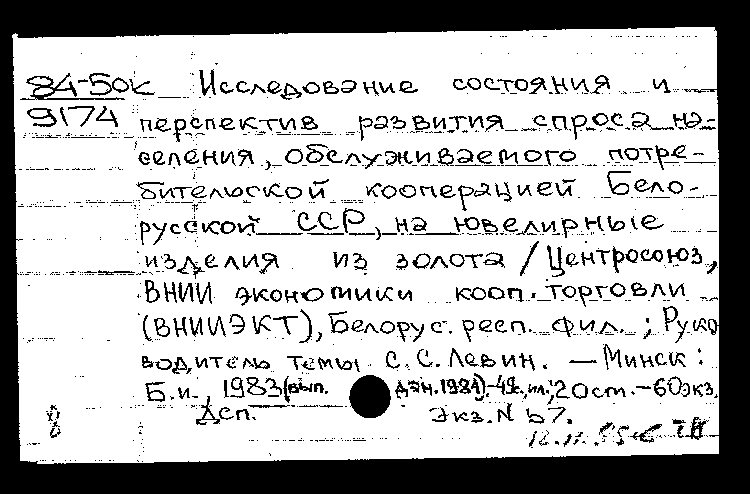 84-50к Исследование состояния и
9174 перспектив развития спроса на-
селения, обслуживаемого потре-
бительской кооперацией Бело-
русской ССР, на ювелирные
изделия из золота / Центросоюз,
ВНИИ экономики кооп. торговли
(ВНИИЭКТ), Белорус. респ. фил. ; Руко
водитель темы С. С. Левин. — Минск :
Б.и., 1983 (вып. дан. 1984).-49с., 20 см. -60экз.
8 Дсп. Экз. N 67.